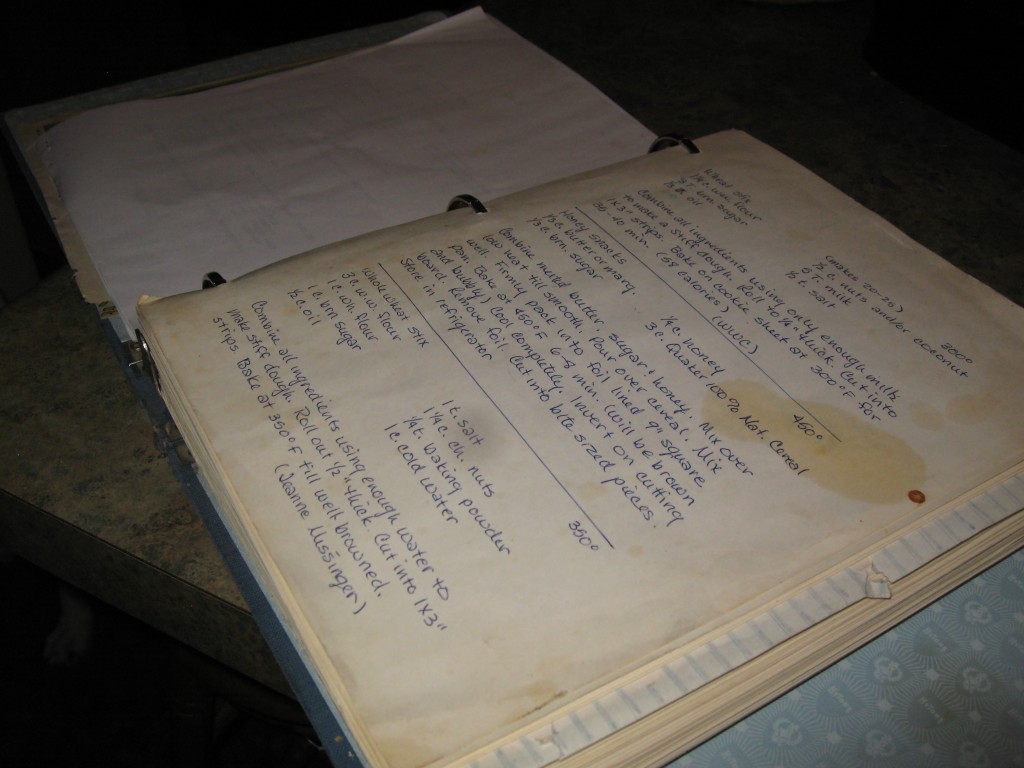 (makes 20-25) 300°
flour ½ c. nuts and/or coconut
brn sugar 5 T. milk
oil ½ t. salt
Combine all ingredients using only enough milk
to make a stiff dough. Roll to ¼" thick. Cut into
1x3" strips. Bake on cookie sheet at 300°F for
30-40 min. (69 calories) (WWC)
Honey Snacks 450°
⅓ c. butter or marg. ¼ c. honey
⅓ c. brn. sugar 3 c. Quaker 100% Nat. Cereal
Combine melted butter, sugar + honey. Mix over
low heat till smooth. Pour over cereal. Mix
well. Firmly pack into foil lined 9" square
pan. Bake at 450°F 6-8 min. (will be brown
and bubbly) Cool completely, invert on cutting
board. Remove foil. Cut into bite sized pieces.
Store in refrigerator
Whole Wheat Stix 350°
3 c. w.w. flour 1 t. salt
1 c. wh. flour 1¼ c. ch. nuts
1 c. brn sugar ¼ t. baking powder
½ c. oil 1 c. cold water
Combine all ingredients using enough water to
make stiff dough. Roll out ½" thick. Cut into 1x3"
strips. Bake at 350°F till well browned.
(Jeanne Nissinger)